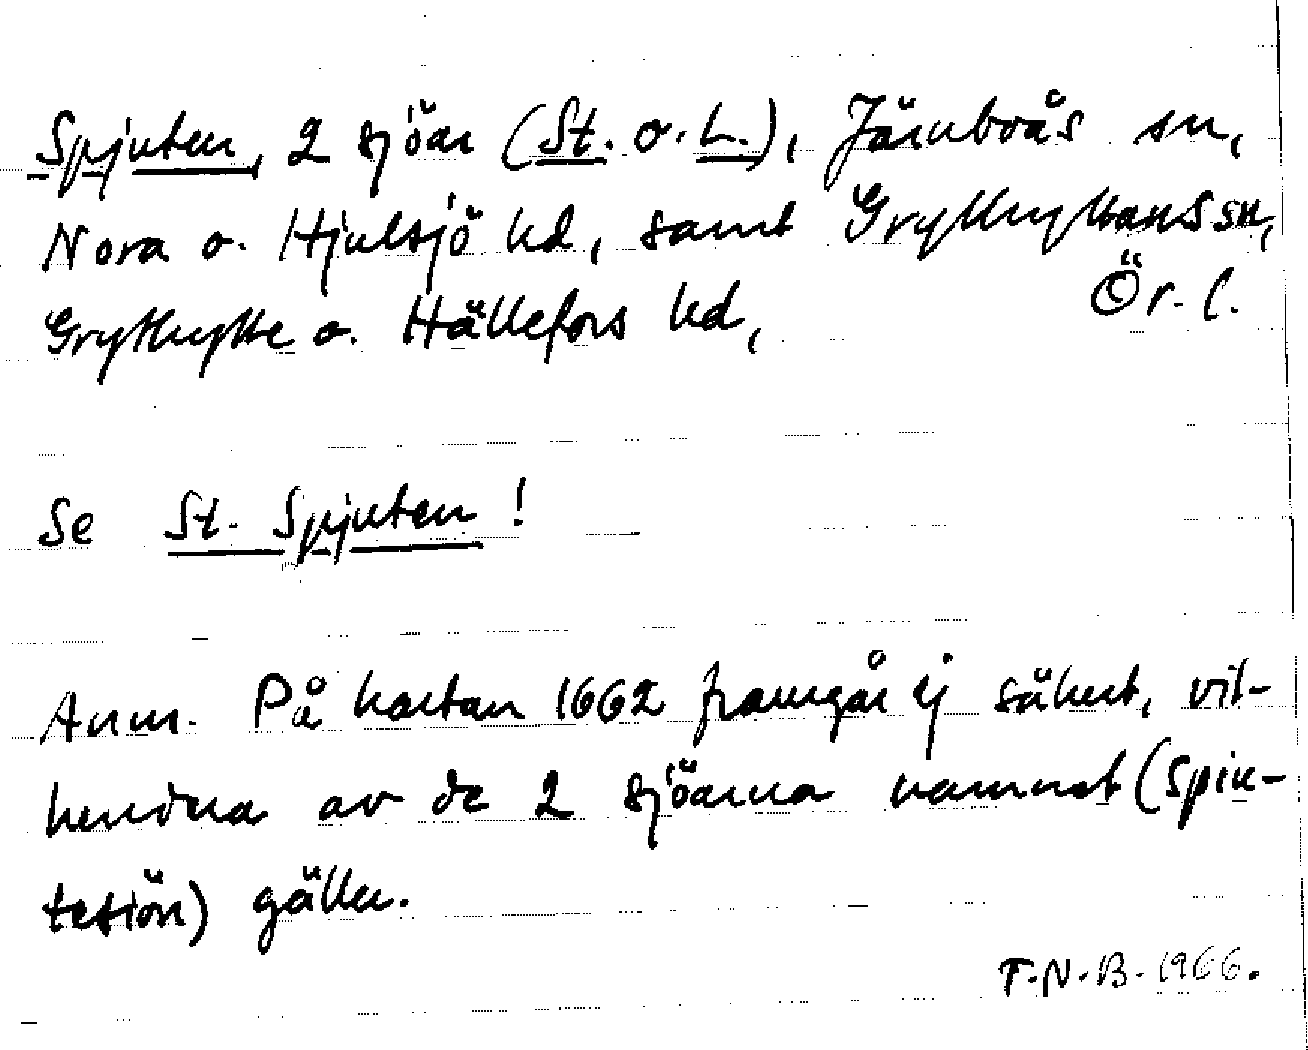 Spjuten, 2 sjöar (St. o. L.), Järnboås sn,
Nora o. Hjulsjö hd, samt Grythyttans sn,
Grythytte o. Hällefors hd, Ör. l.
Se St. Spjuten!
Anm. På kartan 1662 framgår ej säkert, vil-
kendera av de 2 sjöarna namnet (Spiu-
tesiön) gäller.
T.N.B. 1966.